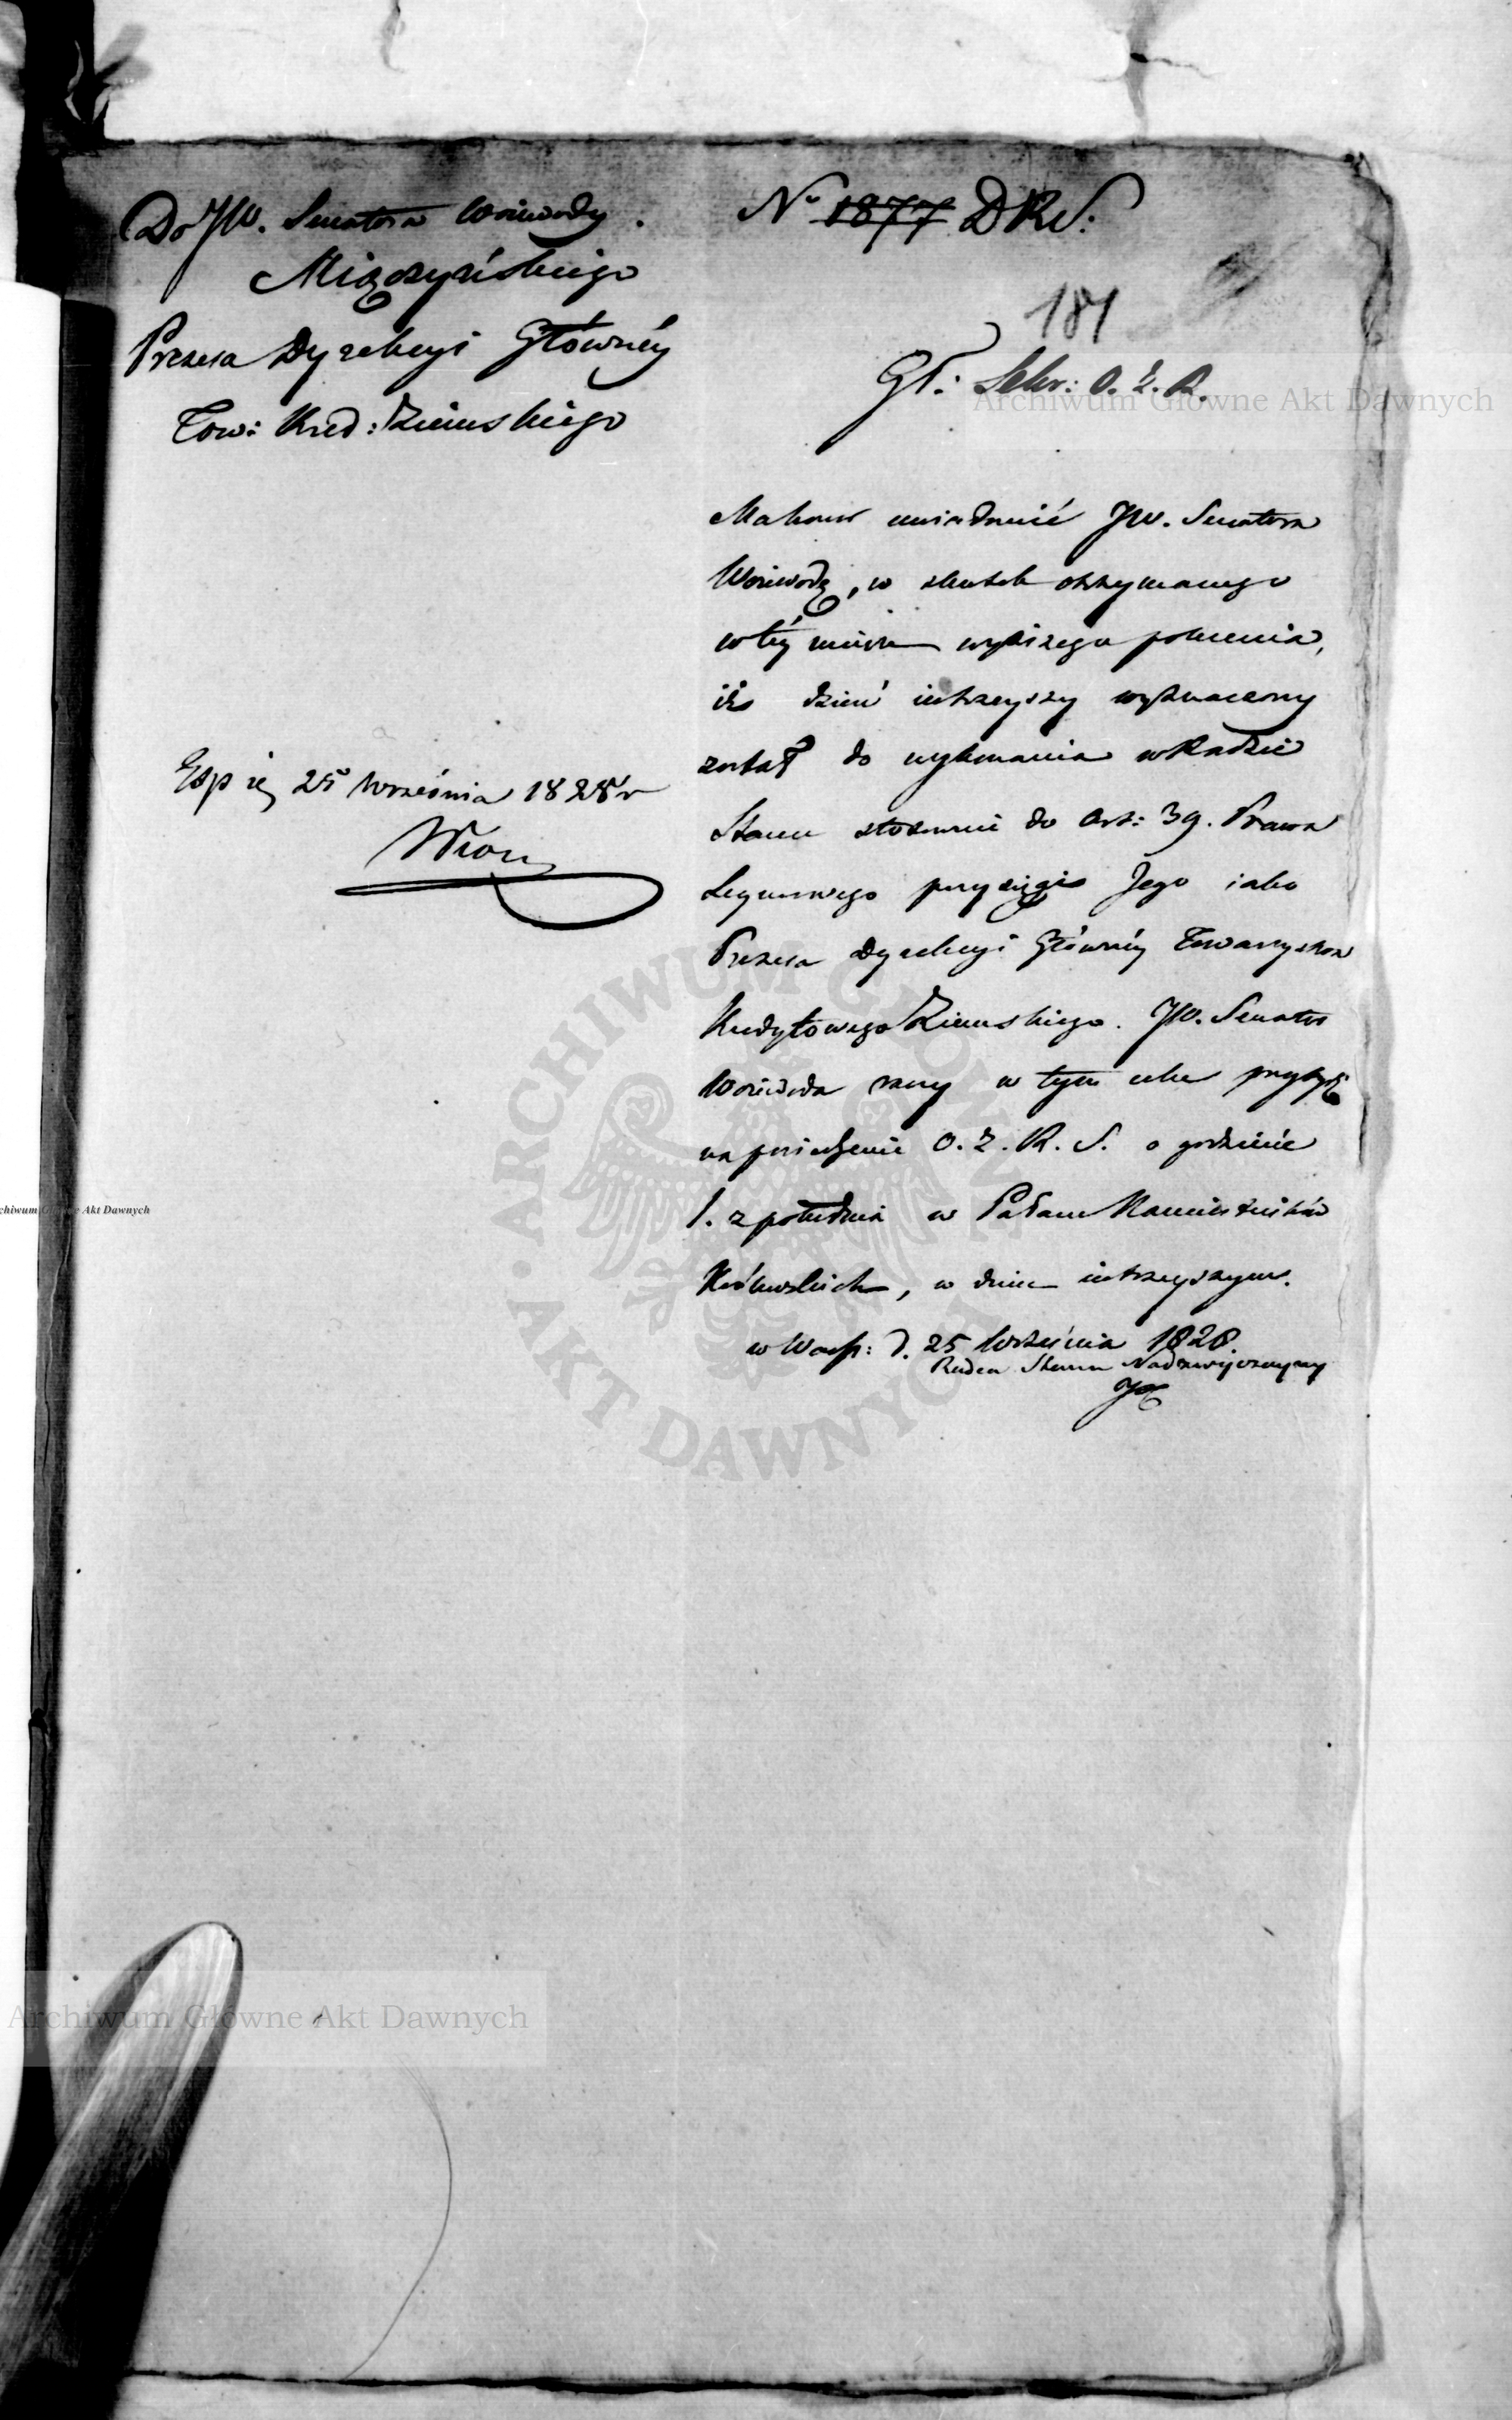 Do JW. Senatora Woiewody
Miączyńskiego
Prezesa Dyrekcyi Głównéy
Tow: Kred: Ziemskiego
No 1877 DRS.
181
Gł: Sekr: O. Z. R.
Mam honor uwiadomić JW. Senatora
Woiewodę, w skutek otrzymanego
w téy mierze wyższego polecenia,
iż dzień iutrzeyszy wyznaczony
został do wykonania w Radzie
Stanu stosownie do Art: 39. Prawa
Seymowego przysięgi Jego iako
Prezesa Dyrekcyi Głównéy Towarzystwa
Kredytowego Ziemskiego. JW. Senator
Woiewoda raczy w tym celu przybyć
na posiedzenie O. Z. R. S. o godzinie
1. z południa w Pałacu Namiestników
Królewskich, w dniu iutrzeyszym.
w Warsz: d. 25 Września 1828.
Radca Stanu Nadzwyczayny
Exp 25 Września 1828 r
Archiwum Główne Akt Dawnych
Archiwum Główne Akt Dawnych
chiwum Główne Akt Dawnych
ARCHIWUM GŁÓWNE · AKT DAWNYCH ·